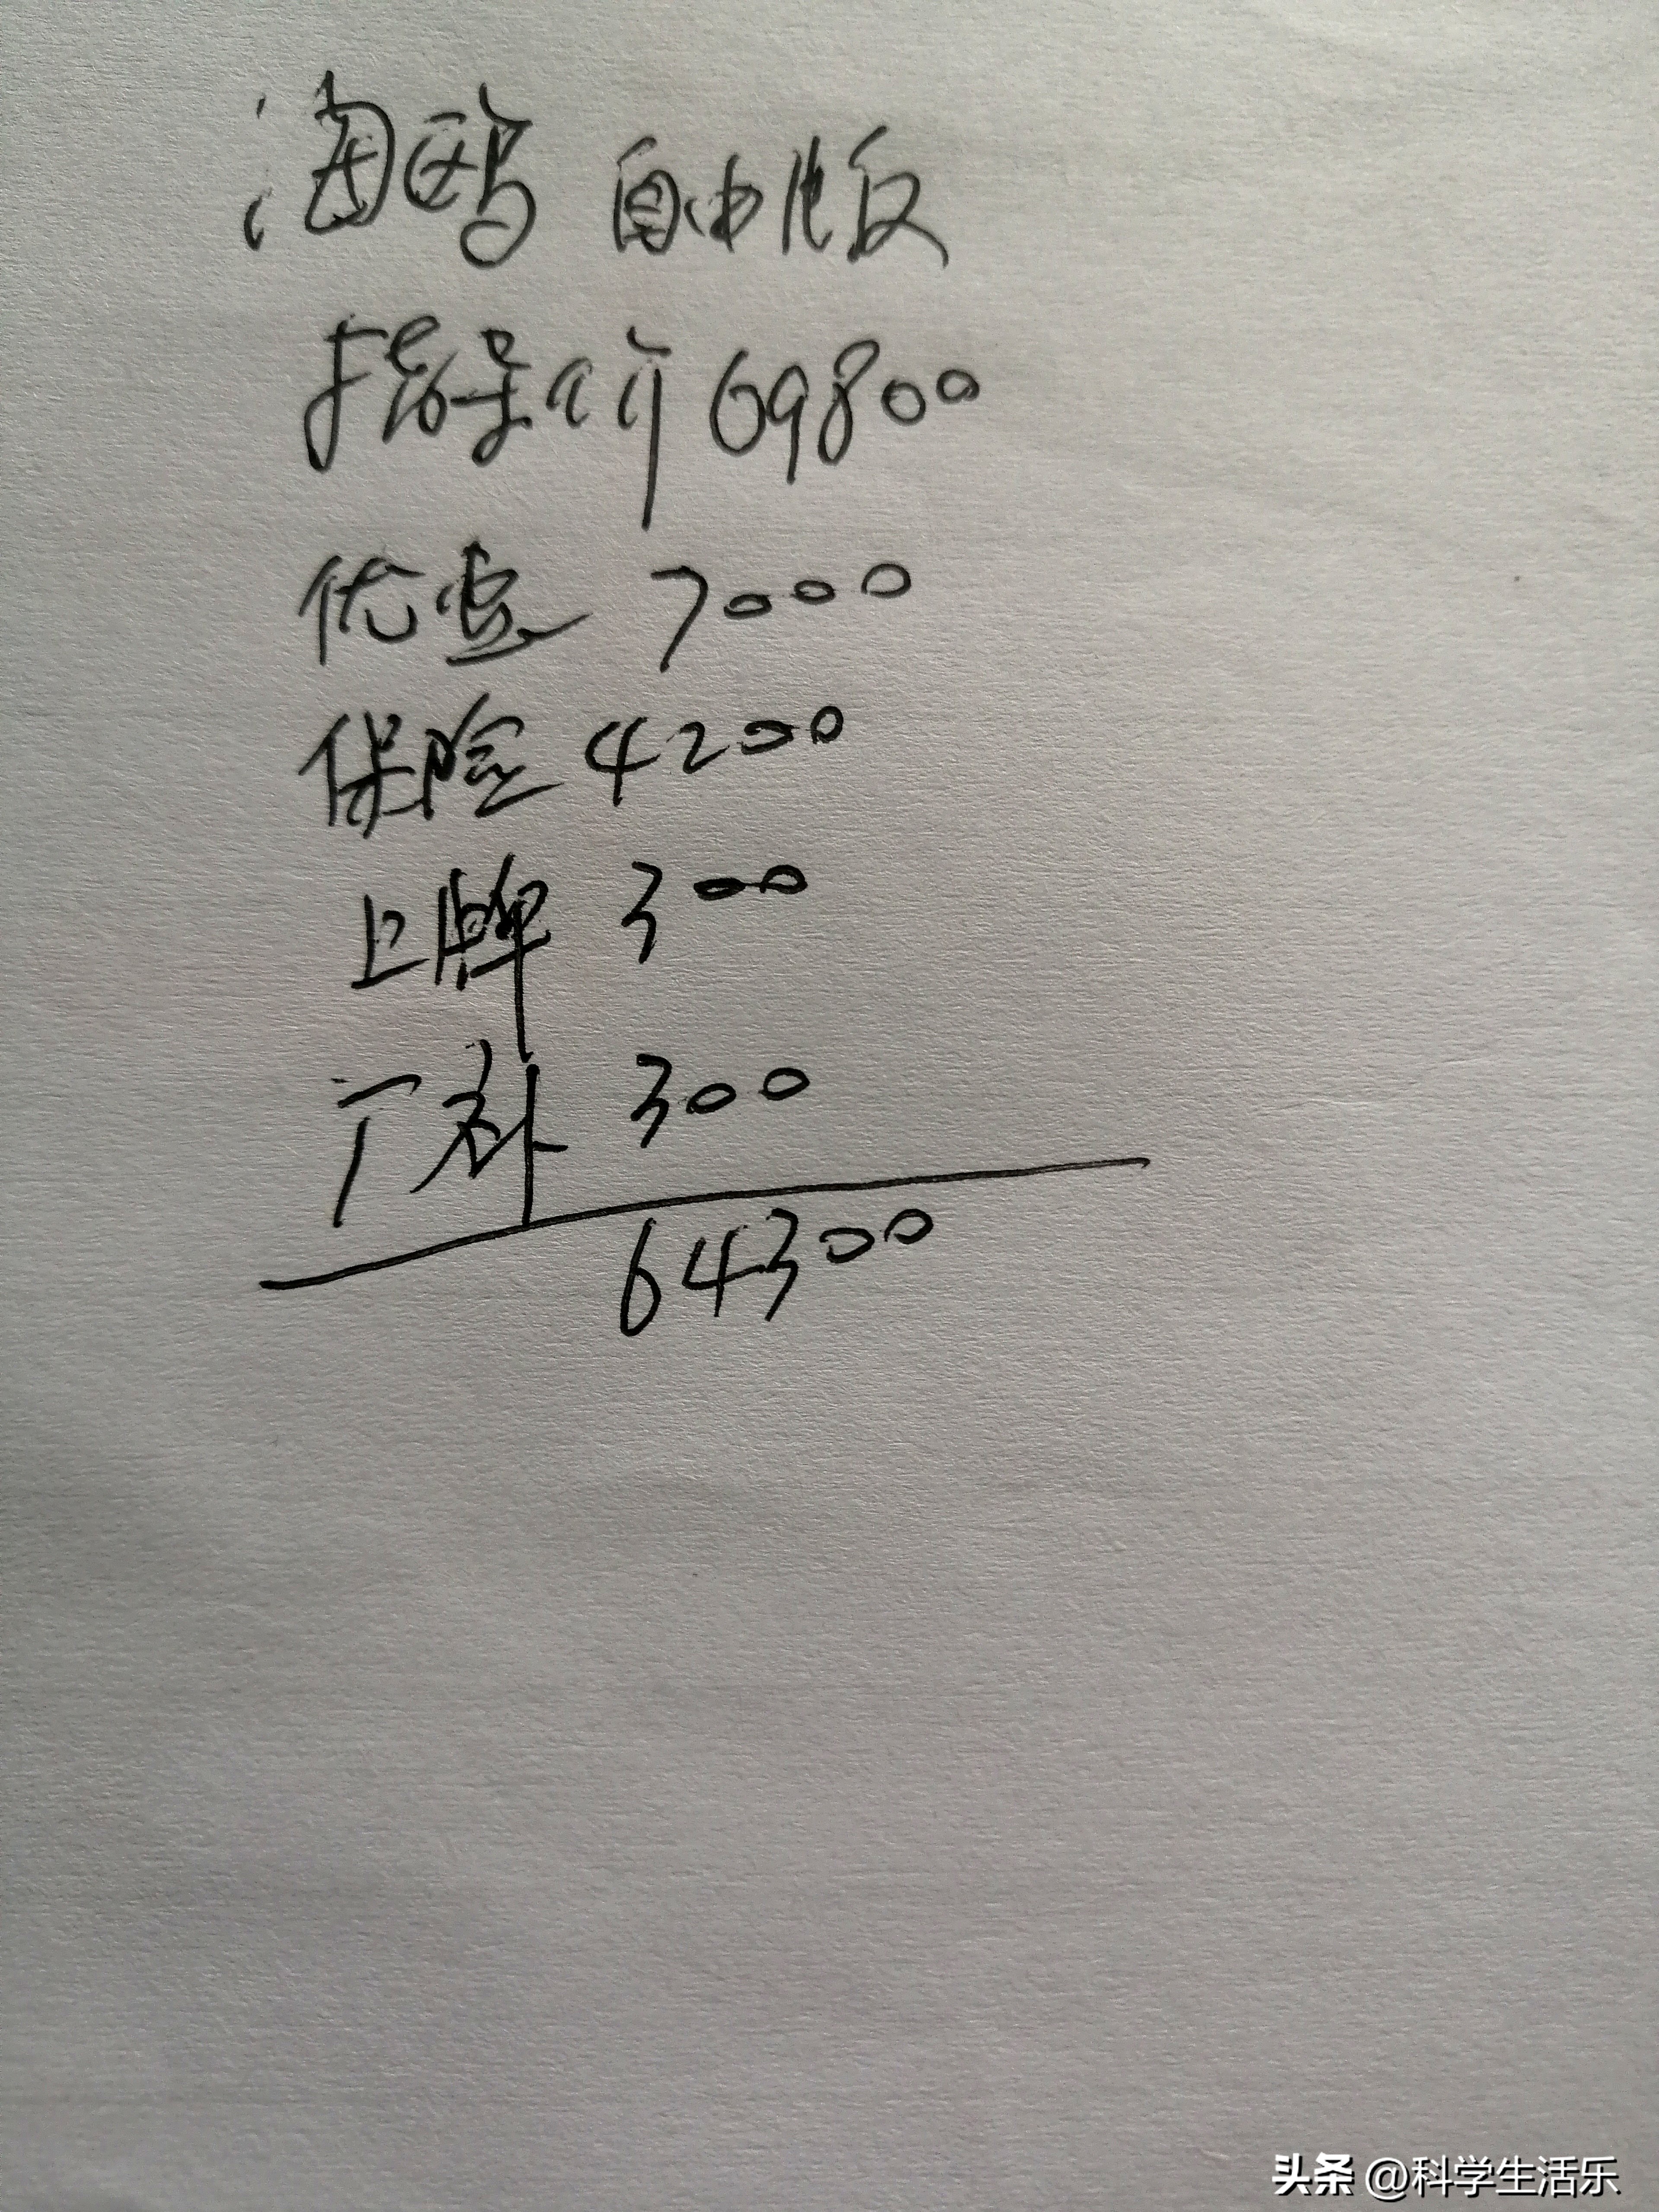 海鸥 自由版
指导价 69800
优惠 7000
保险 4200
上牌 300
厂补 300
64300
头条 @科学生活乐